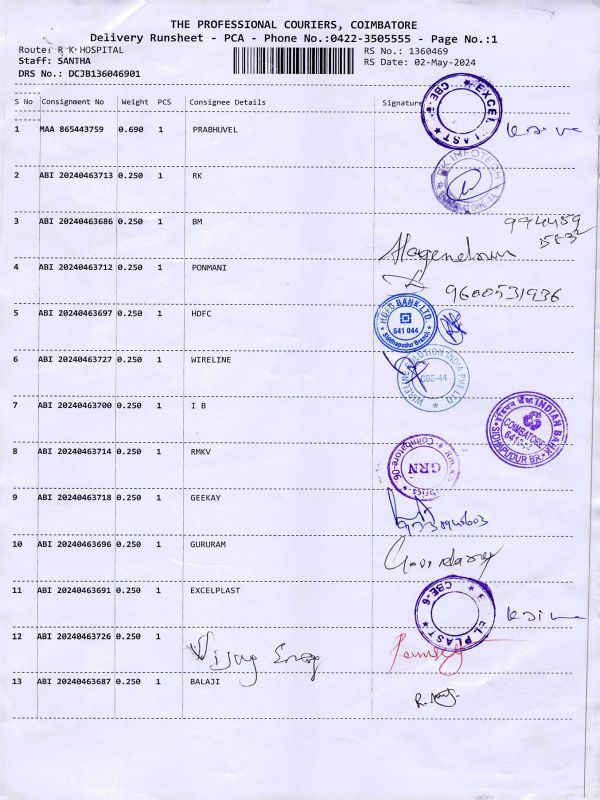 THE PROFESSIONAL COURIERS, COIMBATORE
Delivery Runsheet - PCA - Phone No.:0422-3505555 - Page No.:1
Route: R K HOSPITAL
RS No.: 1360469
Staff: SANTHA
RS Date: 02-May-2024
DRS No.: DCJB136046901
S No Consignment No Weight PCS Consignee Details Signature
1 MAA 865443759 0.690 1 PRABHUVEL
EXCEL PLAST CBE-6
2 ABI 20240463713 0.250 1 RK
RK INFOTECH
3 ABI 20240463686 0.250 1 BM
4 ABI 20240463712 0.250 1 PONMANI
9600531936
5 ABI 20240463697 0.250 1 HDFC
HDFC BANK LTD.
641 044
Siddhapudur Branch
6 ABI 20240463727 0.250 1 WIRELINE
WIRELINE SOLUTION INDIA PVT LTD
CBE-44
7 ABI 20240463700 0.250 1 I B
INDIAN BANK
COIMBATORE
SIDHAPUDUR BR.
8 ABI 20240463714 0.250 1 RMKV
GRN
Coimbatore-06
9 ABI 20240463718 0.250 1 GEEKAY
10 ABI 20240463696 0.250 1 GURURAM
11 ABI 20240463691 0.250 1 EXCELPLAST
EL PLAST CBE-6
12 ABI 20240463726 0.250 1
Vijay
13 ABI 20240463687 0.250 1 BALAJI